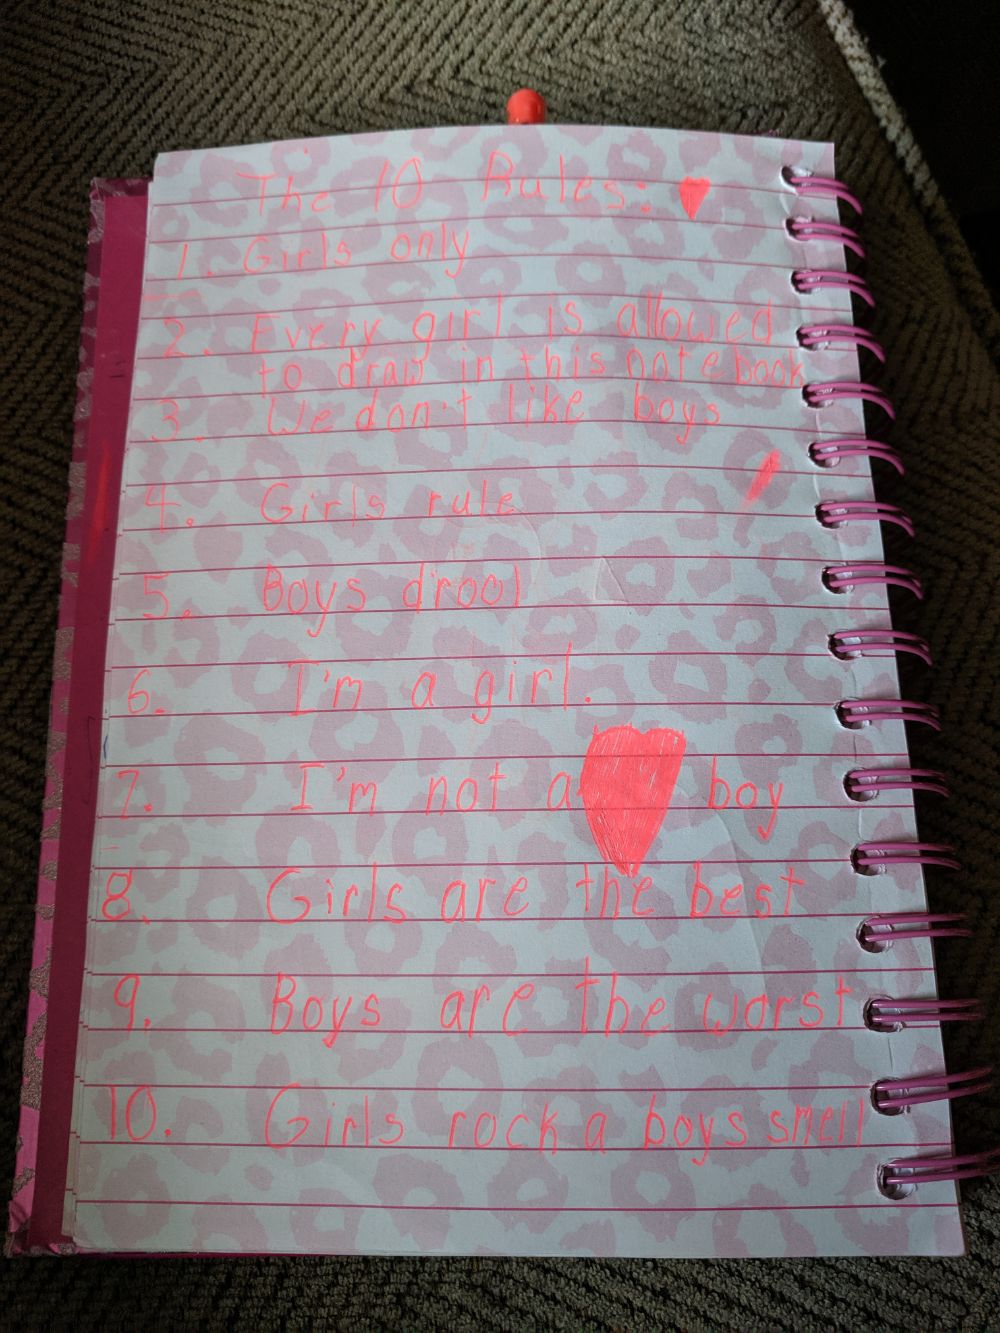 The 10 Rules:
1. Girls only
2. Every girl is allowed
to draw in this notebook
3. We don't like boys
4. Girls rule
5. Boys drool
6. I'm a girl.
7. I'm not a boy
8. Girls are the best
9. Boys are the worst
10. Girls rock a boys smell